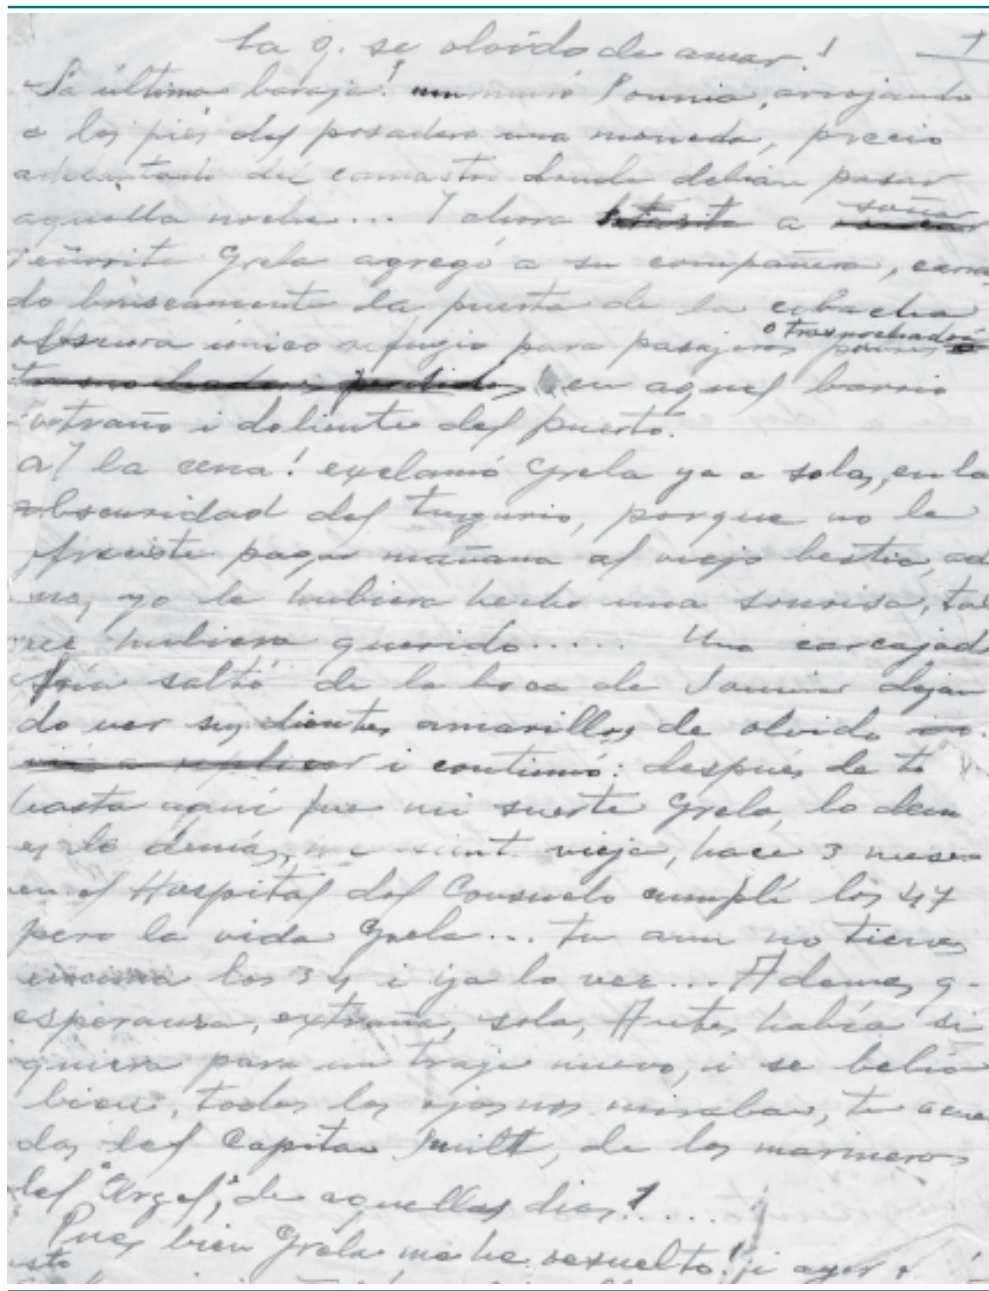 La q. se olvido de amar!
1
La última baraja! murmuró Sounia, arrojando
a los pies del posadero una moneda, precio
adelantado del camastro donde debian pasar
aquella noche... I ahora a soñar
señorita Grela agregó a su compañera, cerran
do bruscamente la puerta de la cobacha
obscura único refugio para pasajeros pobres o trasnochadores
en aquel barrio
extraño i doliente del puerto.
¿I la cena! exclamó Grela ya a solas, en la
obscuridad del tugurio, porque no le
ofreciste pagar mañana al viejo bestia, ade
mas yo le hubiera hecho una sonrisa, tal
vez hubiera querido..... Una carcajada
fria saltó de la boca de Sounia dejan
do ver sus dientes amarillos de olvido
i continuó: después de todo
hasta aquí fue mi suerte Grela, lo demas
es lo demás, me siento vieja, hace 3 meses
en el Hospital del Consuelo cumplí los 47
pero la vida Grela... tu aun no tienes
encima los 34 i ya lo ves... Ademas q.
esperanza, extraña, sola, Antes había si
quiera para un traje nuevo, i se bebia
bien, todos los ojos nos miraban, te acuer
das del Capitan Smilt, de los marineros
del "Argel", de aquellos dias?....
Pues bien Grela me he resuelto! i ayer